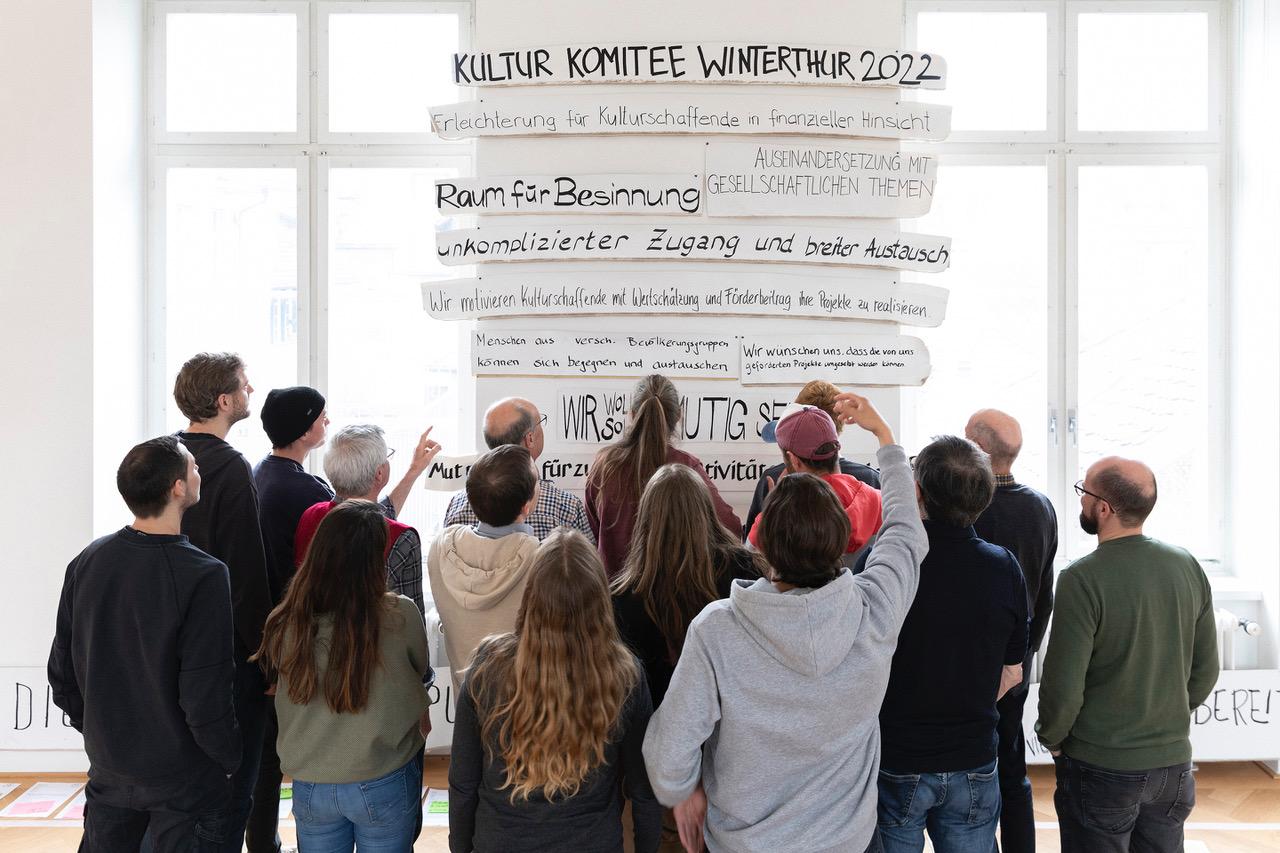 KULTUR KOMITEE WINTERTHUR 2022
Erleichterung für Kulturschaffende in finanzieller Hinsicht
Raum für Besinnung
AUSEINANDERSETZUNG MIT
GESELLSCHAFTLICHEN THEMEN
unkomplizierter Zugang und breiter Austausch
Wir motivieren Kulturschaffende mit Wertschätzung und Förderbeitrag ihre Projekte zu realisieren.
Menschen aus versch. Bevölkerungsgruppen
können sich begegnen und austauschen
Wir wünschen uns, dass die von uns
geförderten Projekte umgesetzt werden können.
WIR MUTIG
Mut für
DI
BEREI